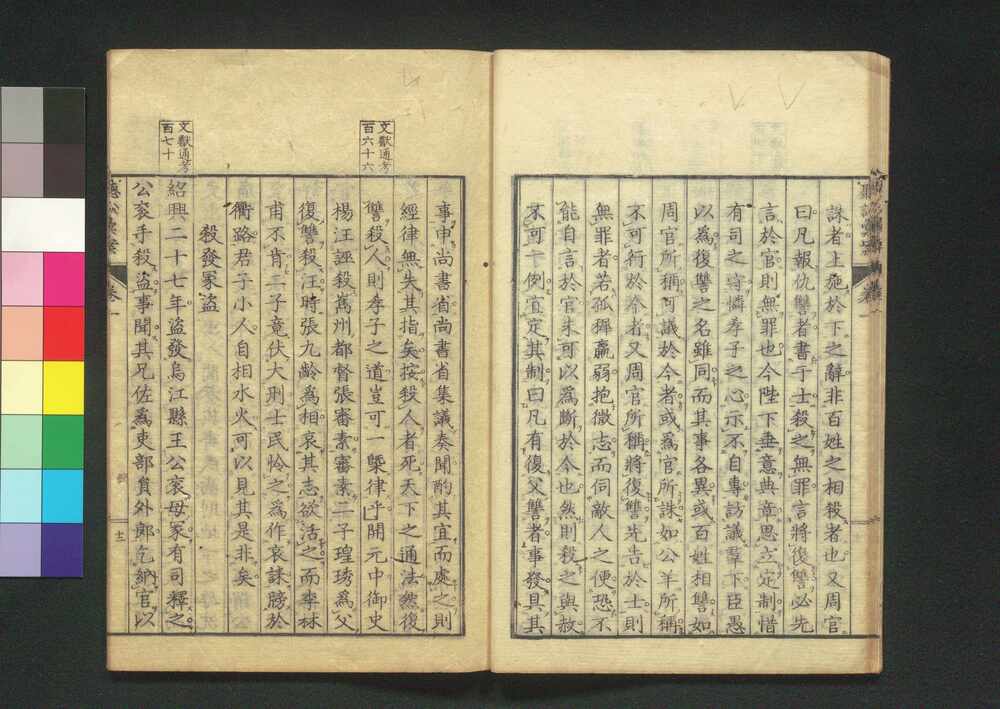 誅者上施於下之辭非百姓之相殺者也又周官
曰凡報仇讐者書于士殺之無罪言將復讐必先
言於官則無罪也今陛下垂意典章思立定制惜
有司之守憐孝子之心示不自專訪議羣下臣愚
以為復讐之名雖同而其事各異或百姓相讐如
周官所稱可議於今者或為官所誅如公羊所稱
不可行於今者又周官所稱將復讐先告於士則
無罪者若孤稚羸弱抱微志而伺敵人之便恐不
能自言於官未可以為斷於今也然則殺之與赦
不可一例宜定其制曰凡有復父讐者事發具其
事申尚書省尚書省集議奏聞酌其宜而處之則
經律無失其指矣按殺人者死天下之通法然復
讐殺人則孝子之道豈可一槩律乎開元中御史
楊汪誣殺嶲州都督張審素審素二子瑝琇為父
復讐殺汪時張九齡為相哀其志欲活之而李林
甫不肯二子竟伏大刑士民怜之為作哀誄牓於
衢路君子小人自相水火可以見其是非矣
殺發冢盜
紹興二十七年盜發烏江縣王公衮母冢有司釋之
公衮手殺盜事聞其兄佐為吏部員外郎乞納官以
文獻通考
百六十六
文獻通考
百七十
卷一
十二